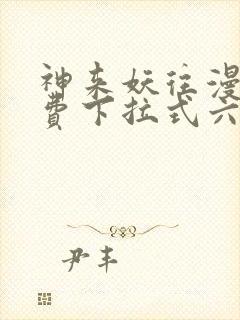 神来妖往漫
费下拉式六
尹丰